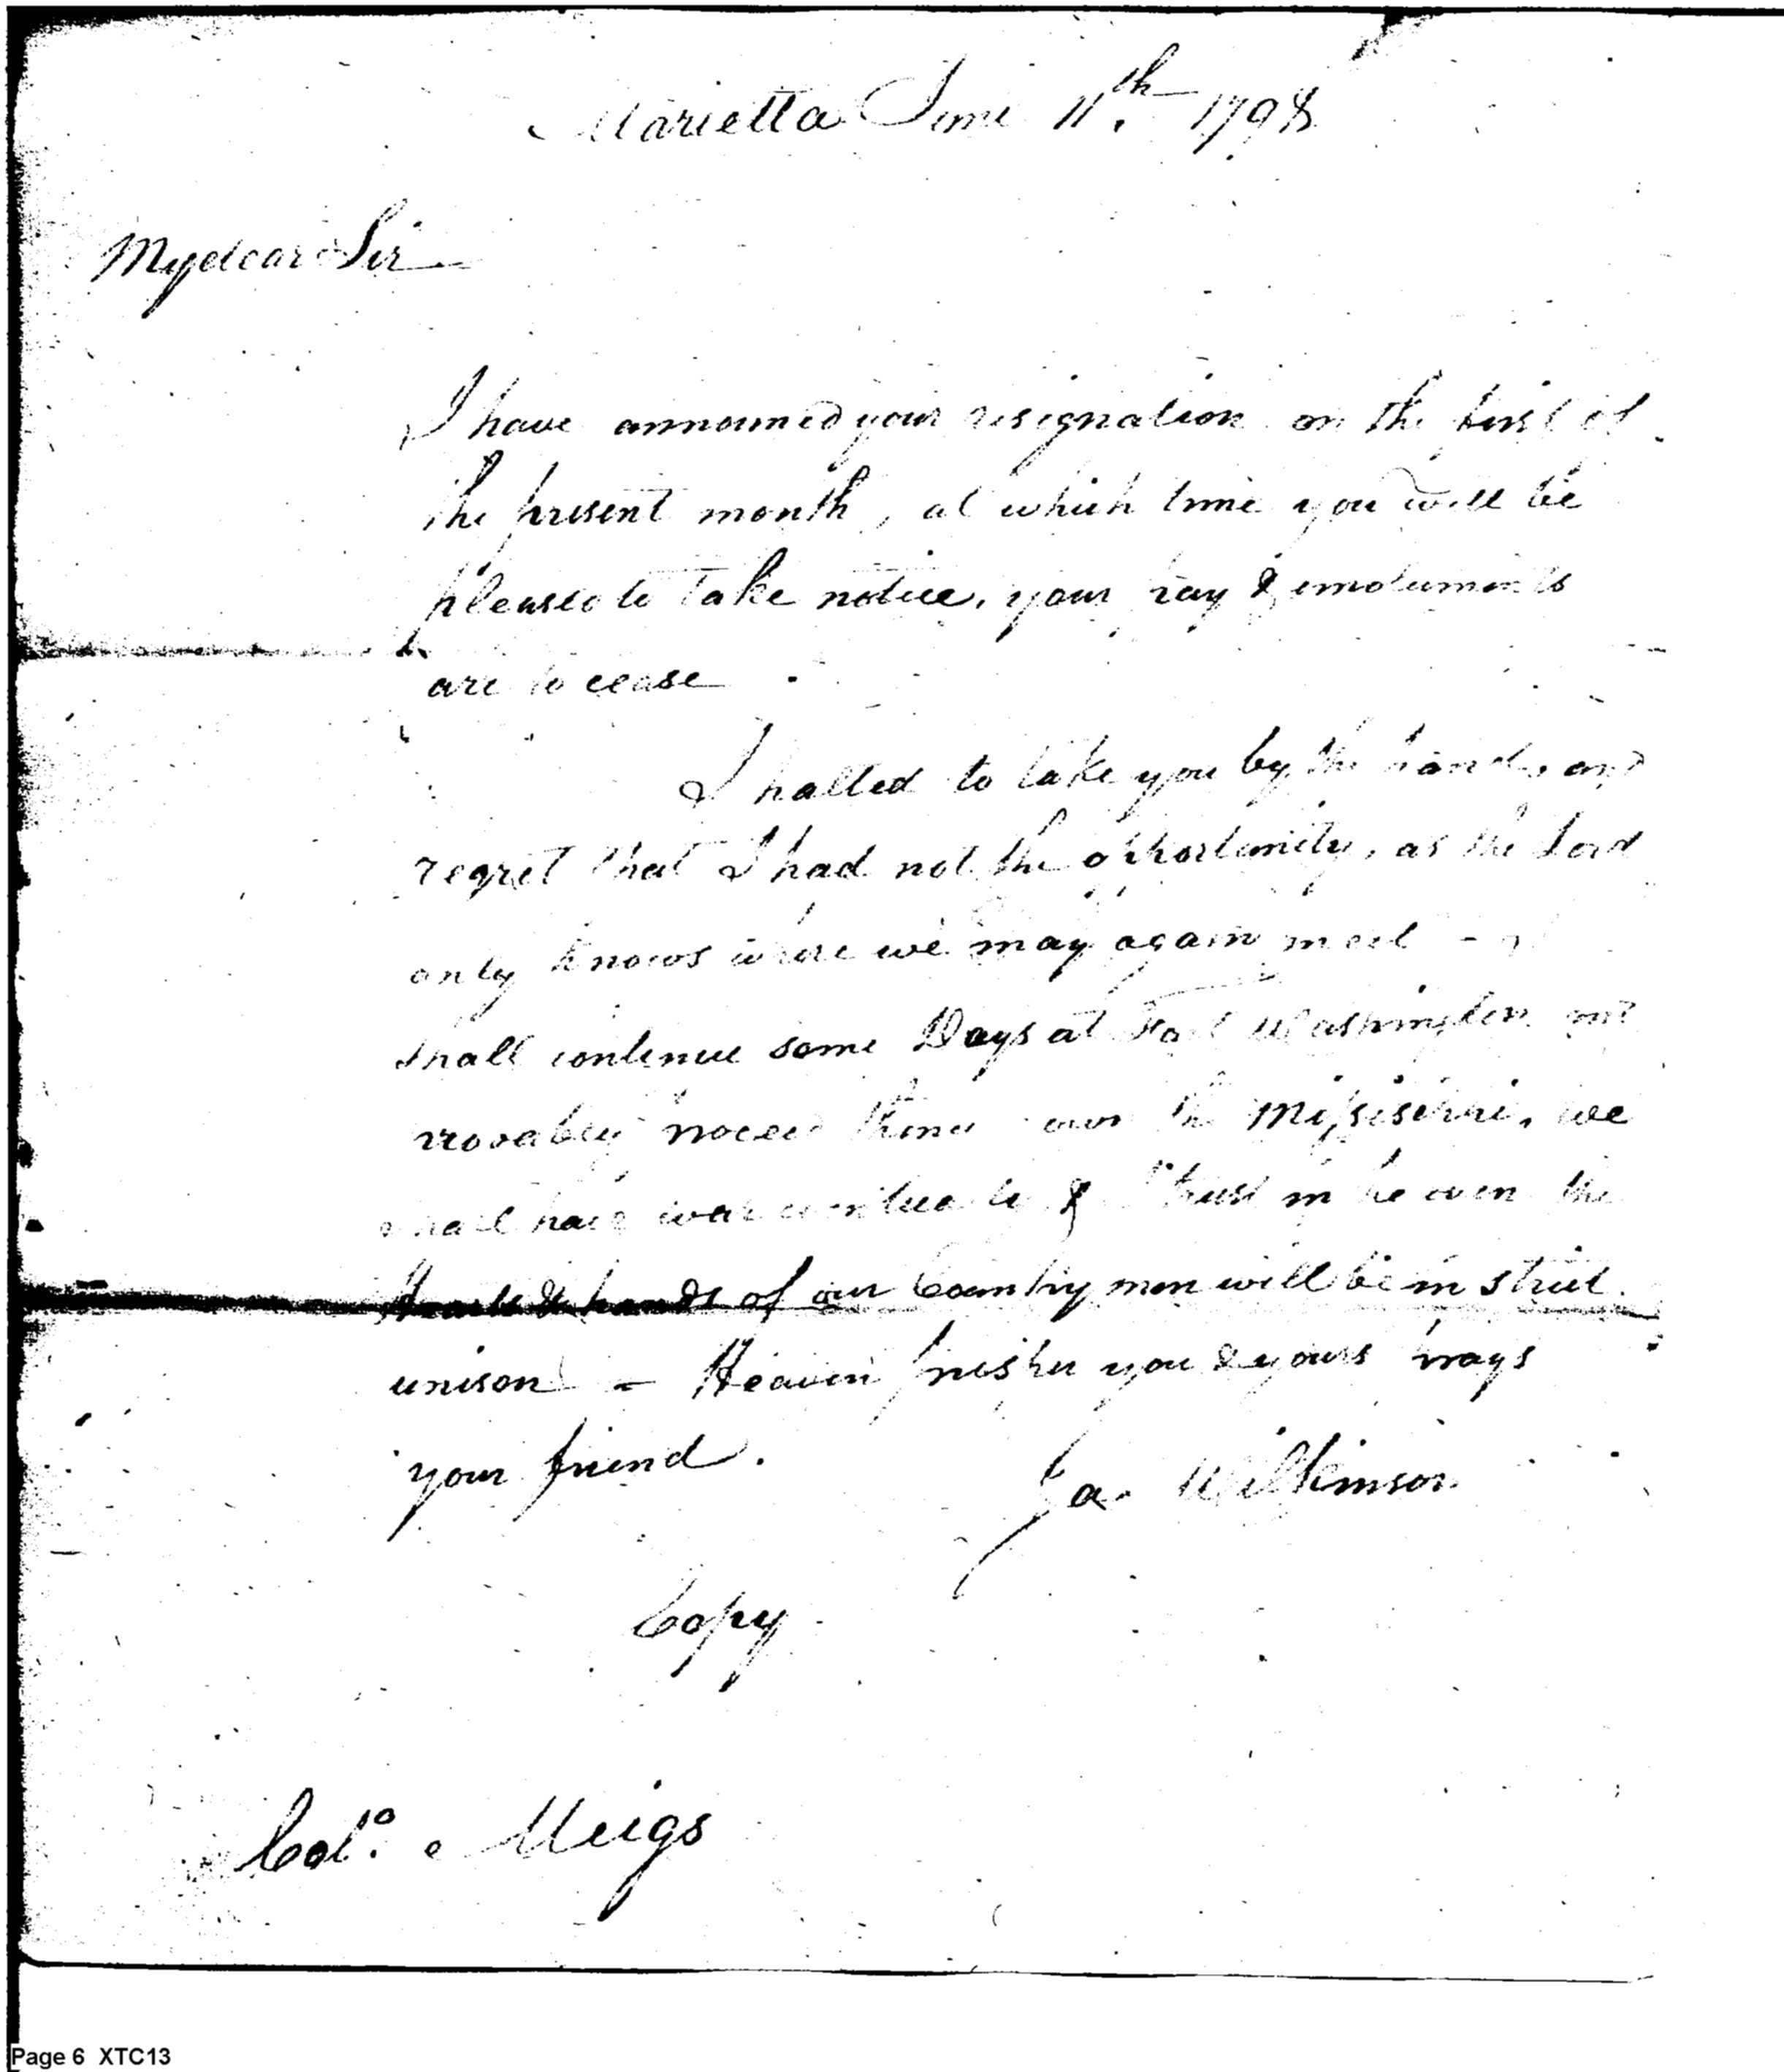 Marietta June 11th. 1798
My dear Sir
I have announced your resignation on the first of
the present month, at which time you will be
pleased to take notice, your pay & emoluments
are to cease.
I halted to take you by the hand, and
regret that I had not the opportunity, as the Lord
only knows where we may again meet - I
shall continue some Days at Fort Washington and
probably proceed thence down the Missisippi, we
shall have war & I trust in heaven the
Hearts & hands of our Country men will be in strict
unison - Heaven prosper you & yours prays
your friend.
Ja. Wilkinson
Copy
Colo. Meigs
Page 6 XTC13